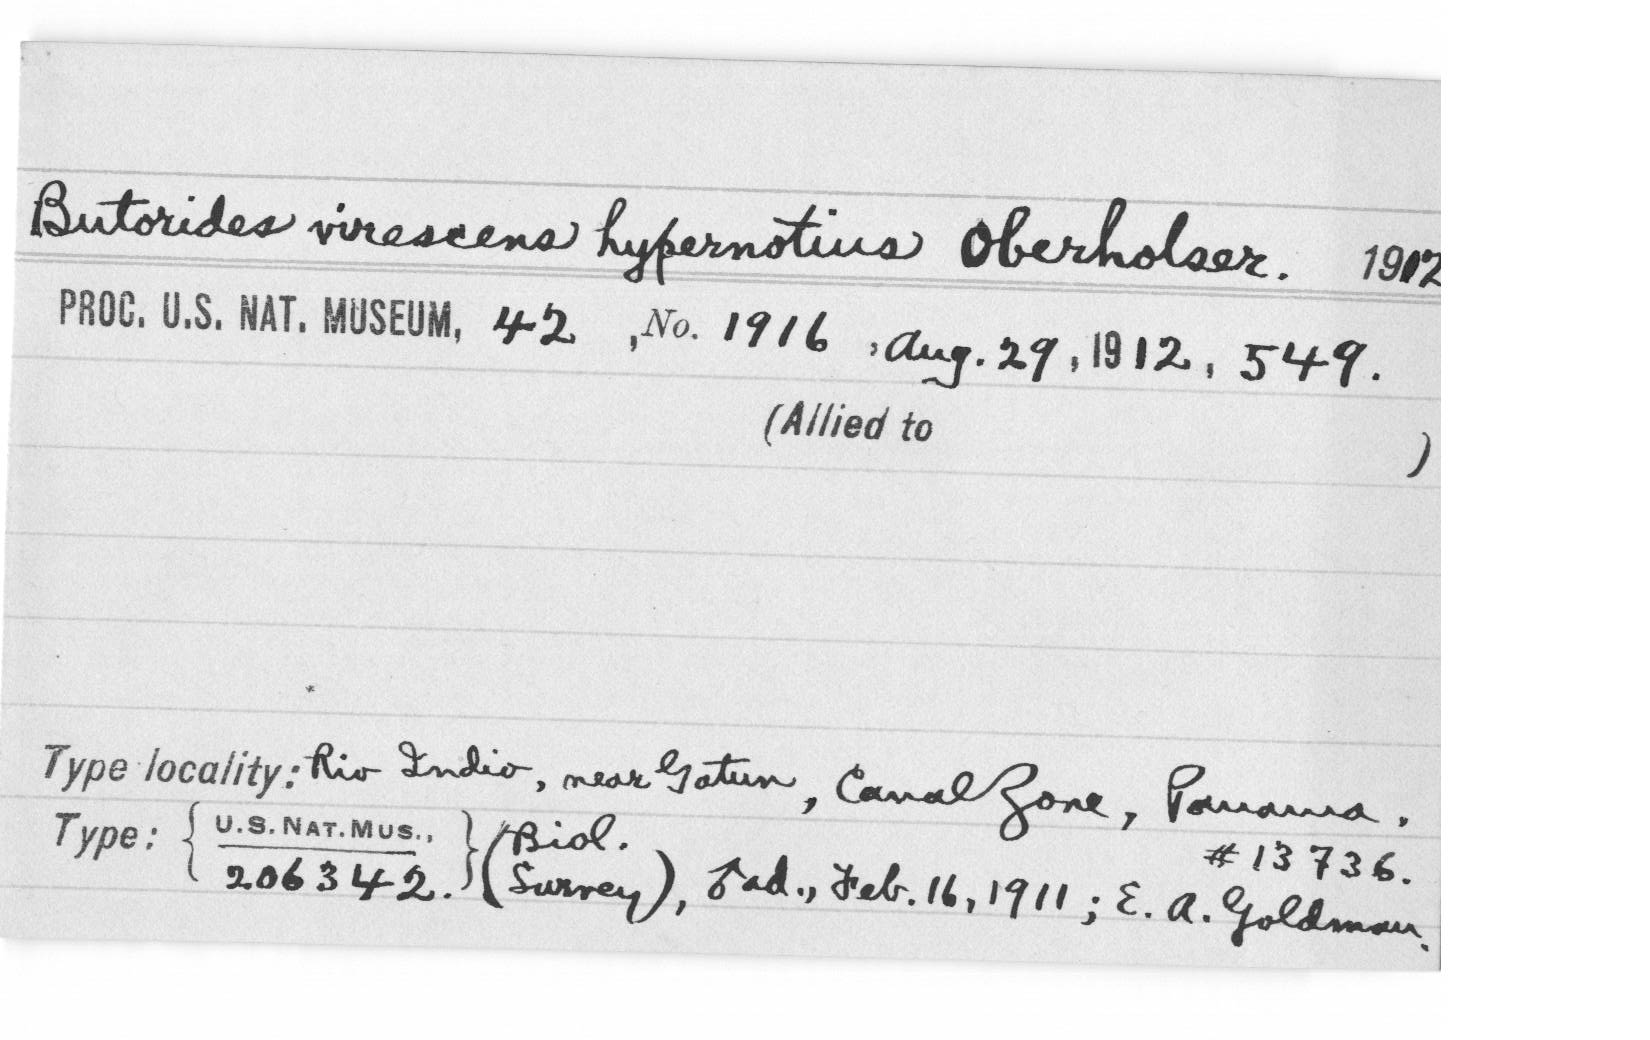 Butorides virescens hypernotius Oberholser. 1912
PROC. U.S. NAT. MUSEUM, 42, No. 1916, Aug. 29, 1912, 549.
(Allied to )
Type locality: Rio Indio, near Gatun, Canal Zone, Panama.
#13736.
Type: { U.S. NAT. MUS., 206342. } (Biol. Survey), ♂ ad., Feb. 16, 1911; E. A. Goldman.